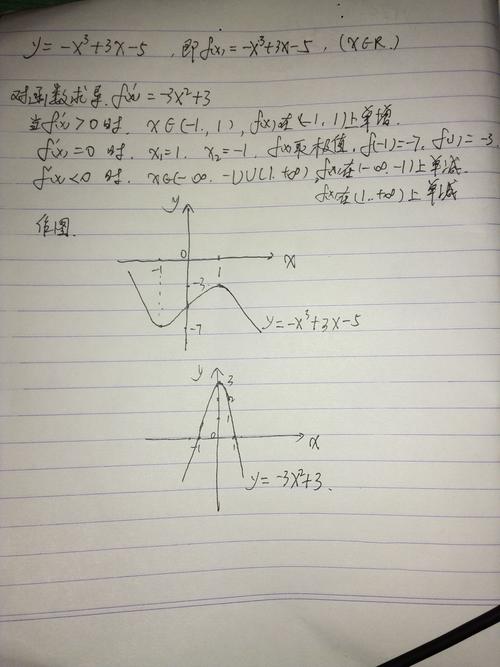 y = -x³+3x-5 , 即 f(x) = -x³+3x-5 , (x∈R.)
对函数求导. f'(x) = -3x²+3
当 f'(x) > 0 时. x∈(-1, 1), f(x)在(-1, 1)上单增.
f'(x) = 0 时. x₁=1. x₂=-1. f(x)取极值, f(-1)=-7, f(1)=-3.
f'(x) < 0 时. x∈(-∞. -1)∪(1. +∞), f(x)在(-∞. -1)上单减.
f(x)在(1. +∞)上单减
作图.
y
0
x
-1
1
-3
-7
y=-x³+3x-5
y
3
2
1
0
-1
1
x
y = -3x²+3.